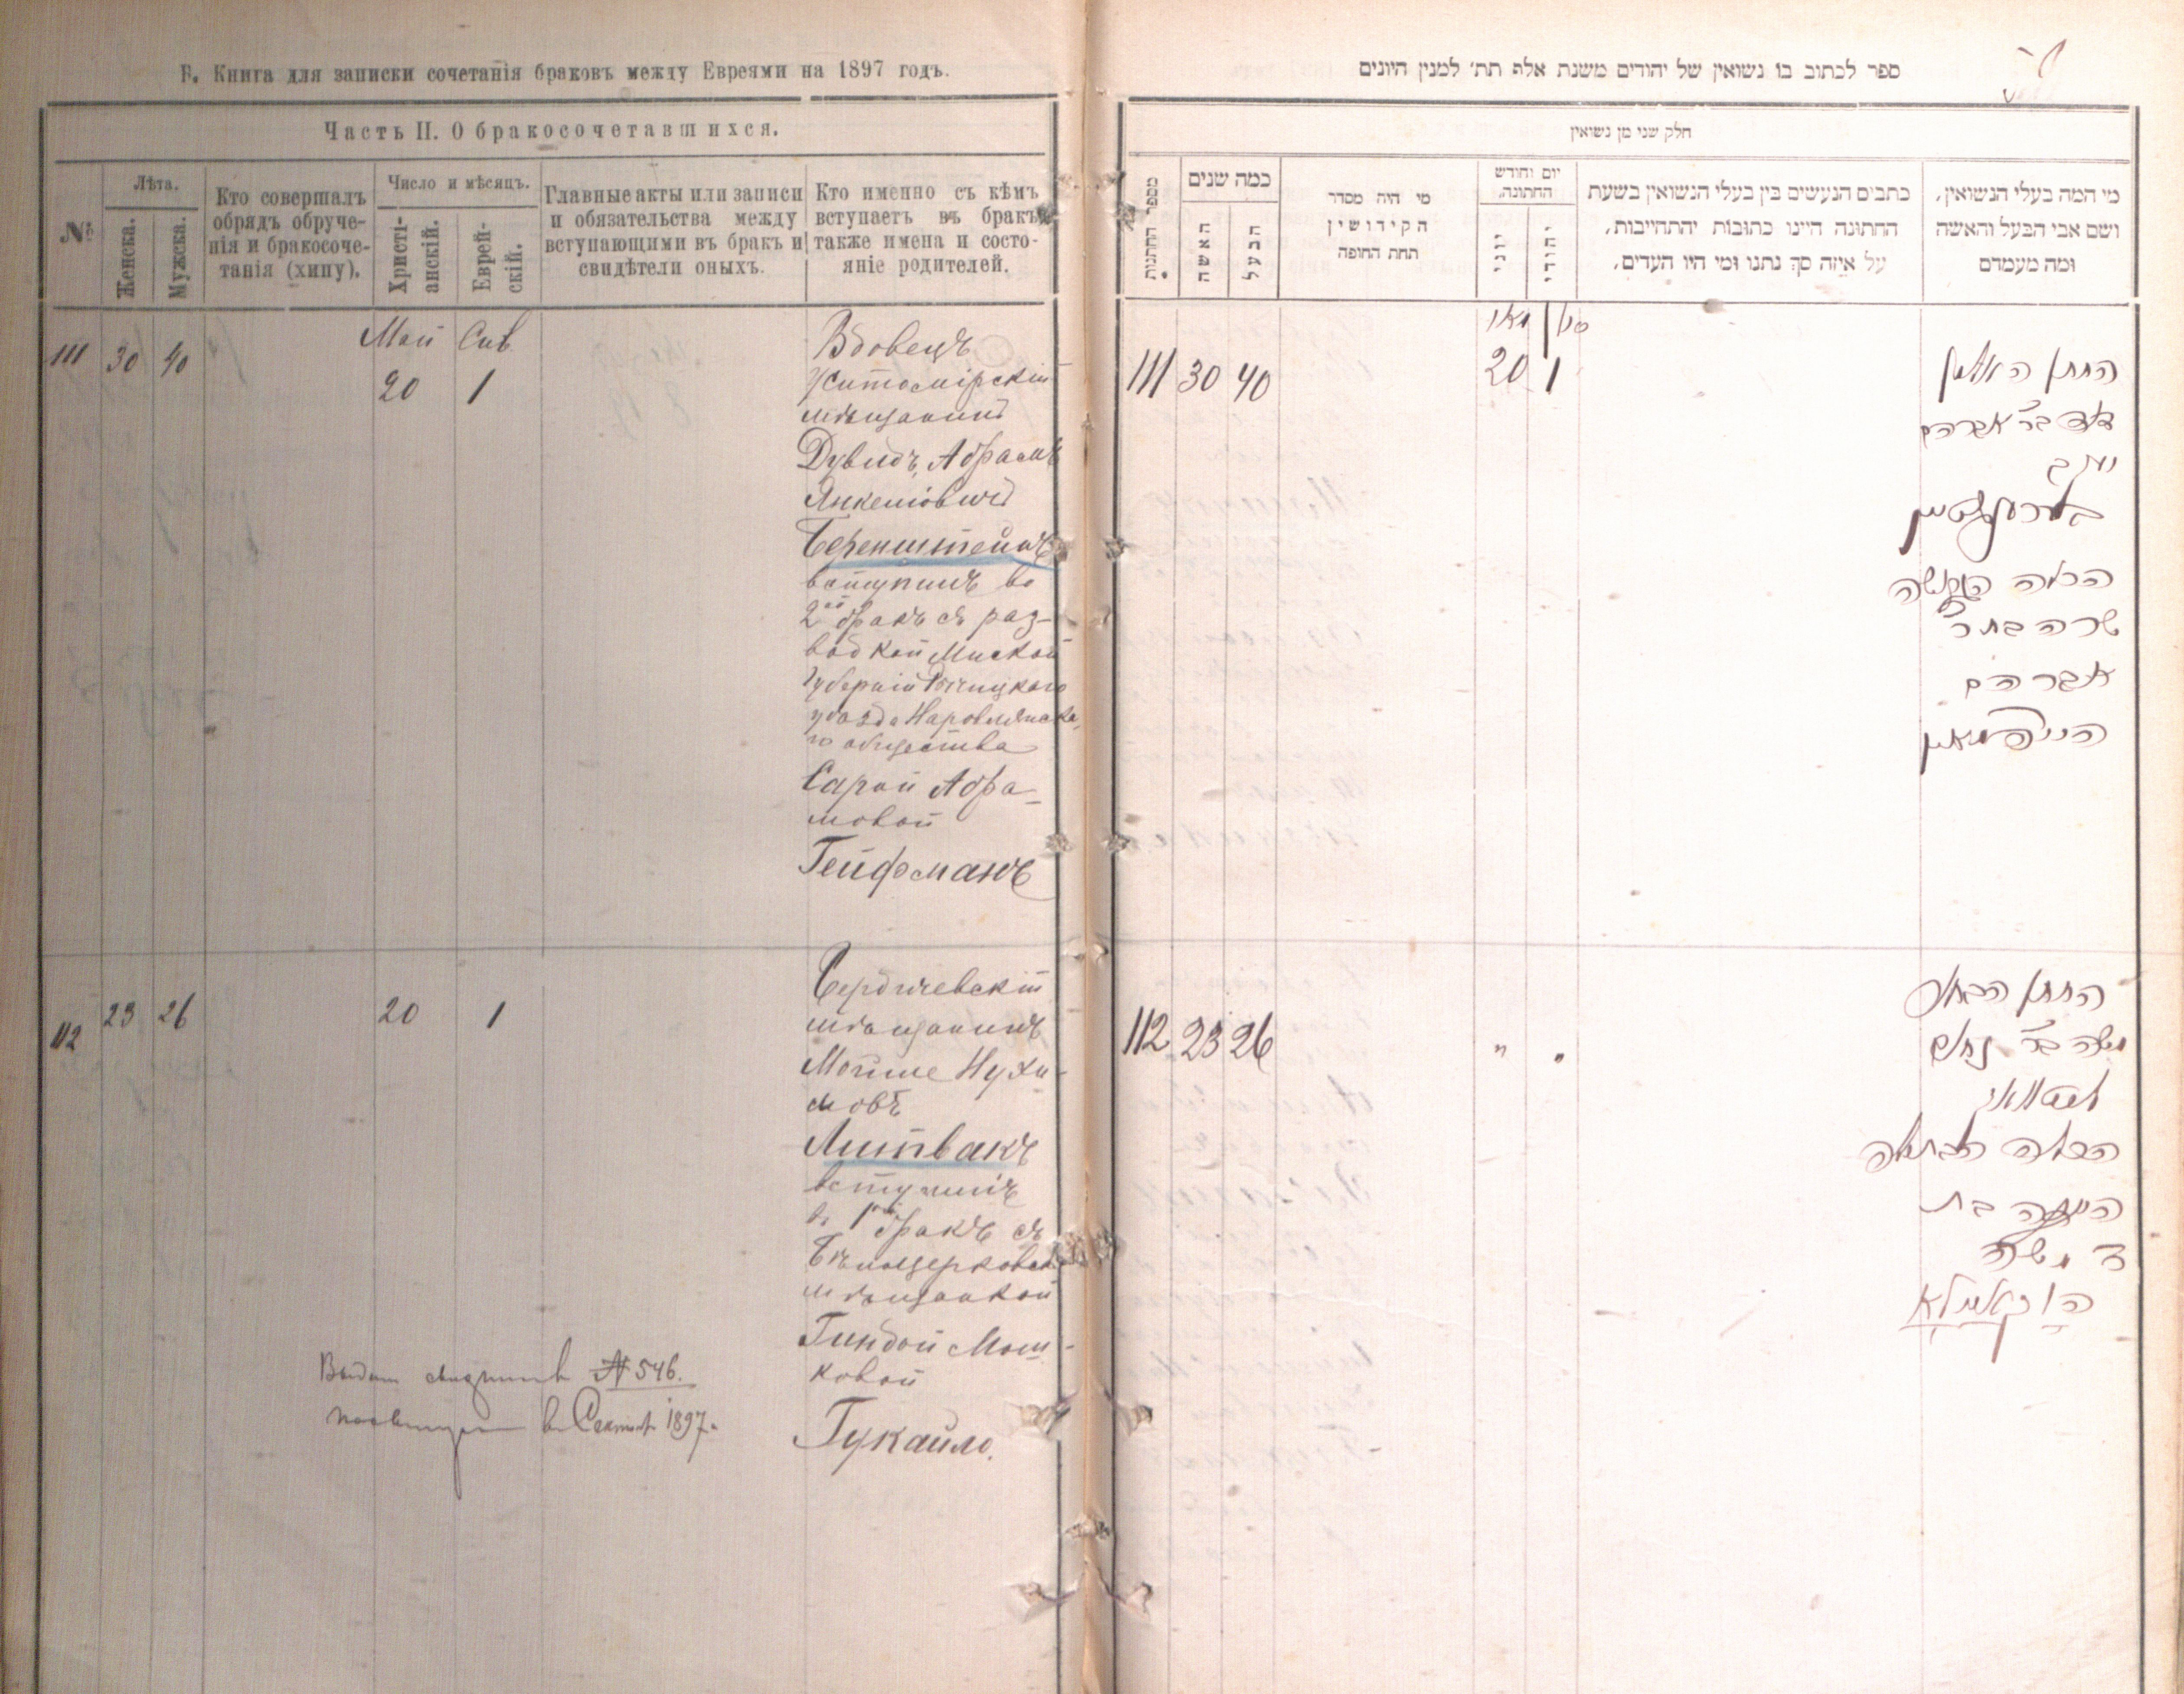 Б. Книга для записки сочетанія браковъ между Евреями на 1897 годъ.
Часть II. О бракосочетавшихся.
№
Лѣта.
Женска.
Мужска.
Кто совершалъ
обрядъ обруче-
нія и бракосоче-
танія (хипу).
Число и мѣсяцъ.
Христі-
анскій.
Еврей-
скій.
Главные акты или записи
и обязательства между
вступающими въ бракъ и
свидѣтели оныхъ.
Кто именно съ кѣмъ
вступаетъ въ бракъ
также имена и состо-
яніе родителей.
111 30 40
Май Сив
20 1
Вдовецъ
Житомірскій
мѣщанинъ
Дувидъ, Абрамъ
Янкеліовичъ
Беренштейнъ
вступилъ во
2ой бракъ съ раз-
водкой Минской
Губерніи Рѣчицкаго
уѣзда Наровлянска-
го общества
Сарой Абра-
мовой
Гейфманъ
112 23 26 20 1
Бердичевскій
мѣщанинъ
Мойше Нухи-
мовъ
Литвакъ
вступилъ
въ 1й бракъ съ
Бѣлоцерковск
мѣщанкой
Гиндой Мош-
ковой
Гукайло.
№ 546.
1897.
ספר לכתוב בו נשואין של יהודים משנת אלף תת׳ למנין היונים
חלק שני מן נשואין
מספר החתנות
כמה שנים
האשה
הבעל
מי היה מסדר
הקידושין
תחת החופה
יום וחודש
החתונה.
יוני
יהודי
כתבים הנעשים בין בעלי הנשואין בשעת
החתונה היינו כתובות יהתחייבות,
על איזה סך נתנו ומי היו העדים.
מי המה בעלי הנשואין,
ושם אבי הבעל והאשה
ומה מעמדם
מאי סיו
111 30 40 20 1
החתן האלמן
דוד בר אברהם
יעקב
בערענשטיין
הכלה הגרושה
שרה בת ר
אברהם
הייפמאן
112 23 26 " "
החתן הבחור
משה בר נחום
ליטוואק
הכלה הבתולה
הינדה בת
ר משה
הוקאילא